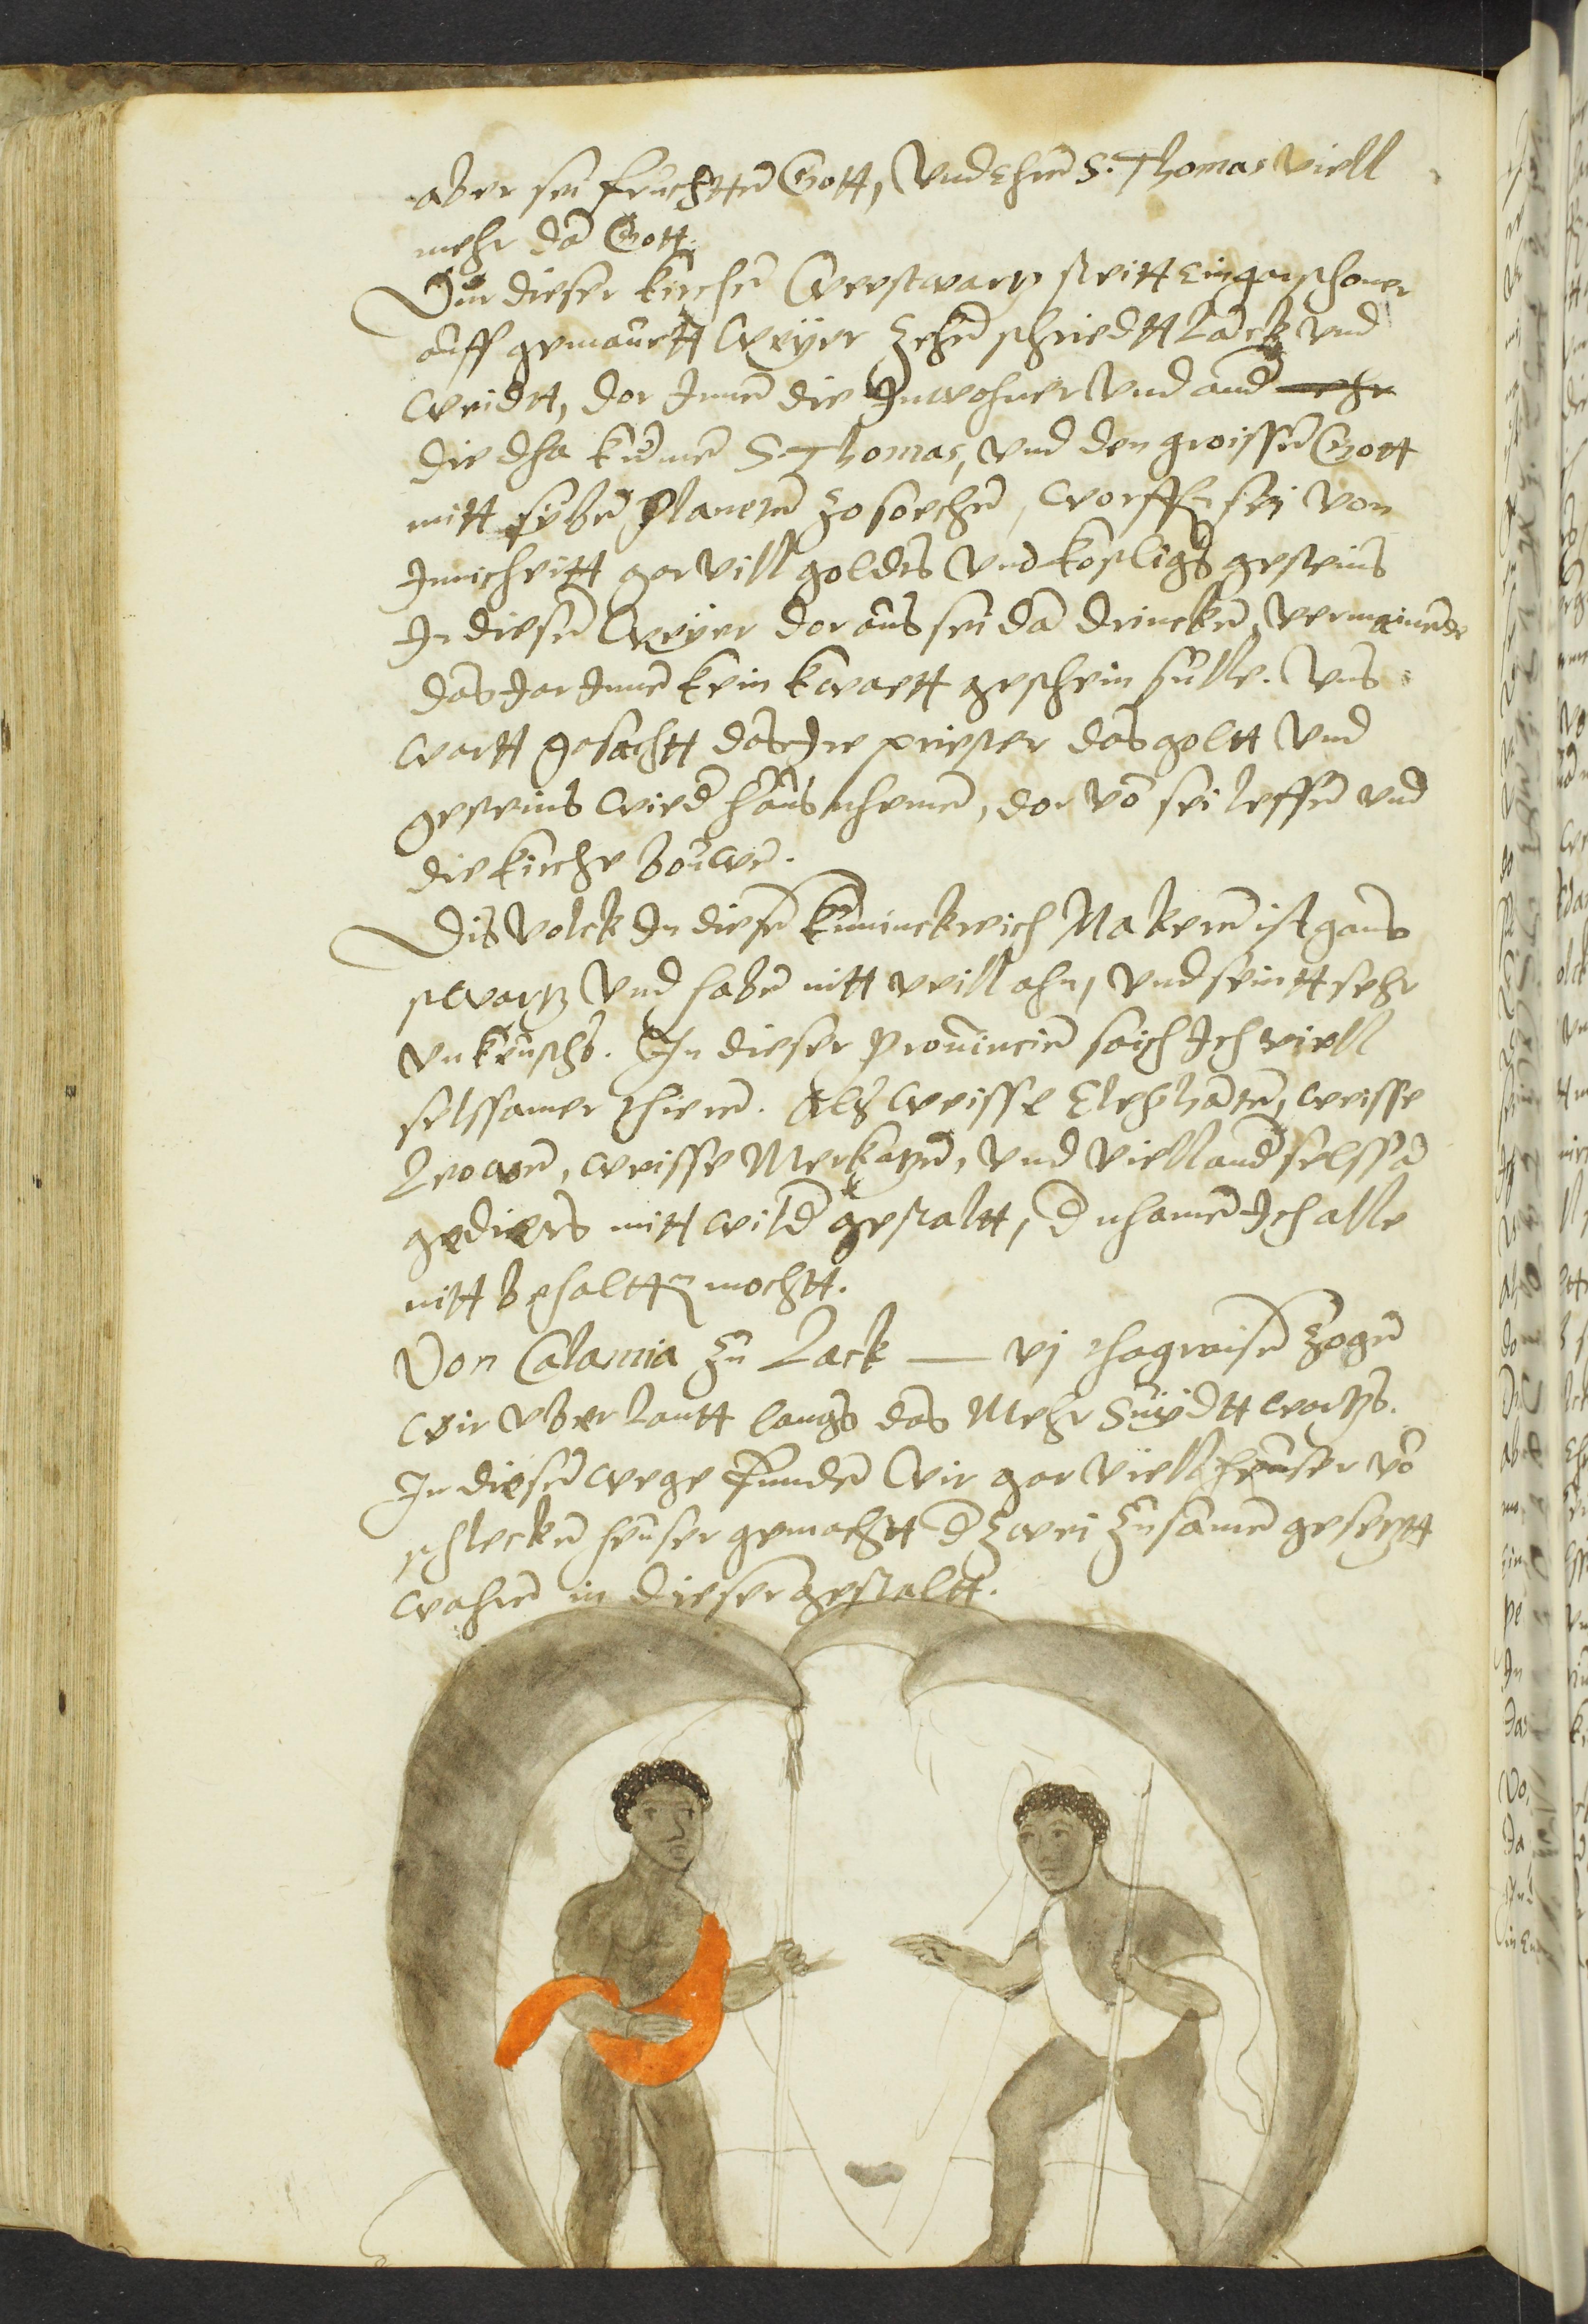 aber sei fruchtten Gott, vnd ehrn S. Thomas viell
mehr dan Gott.
Vur dieser kirchen Westwartz steitt ein gar schoner
auff gemaurtt weyer zehen schriedtt lanck vnd
weidtt, dar Innen die Inwohner vnd ander
die dha kumen S. Thomas, vnd den groissen Gott
mitt seben planeten zo soechen, worffen sei von
Innicheitt gar vill goldes vnd kostligs gesteins
In diesen weyer dar aus sei dan drincken, vermainende
das dar Innen kein kwaett geschein sulle. Vns
wartt gesachtt das Ire priester das goltt vnd
gesteins wieder haus nhemen, dar von sei leffen vnd
die kirche bouwen.
Dis volck In diesen kuninckreich Makeron ist gans
swartz vnd haben nitt vill ahn, vnd seintt sehr
vnkeuschs. In dieser prouincien saich Ich viell
selssamer thieren. Als weisse Elephanten, weisse
Leowen, weisse Merkatzen, vnd viell ander selssam
gediers mitt wilder gestaltt, der nhamen Ich alle
nitt behaltten mochtt.
Von Calamia zu Lack — vj thagreisen zogen
wir vber lantt langs das Mehr suydtt wartzs.
In diesen wege funden wir gar viell heuser von
schlecken heuser gemachtt der zwei zusamen gesetztt
wahren in dieser gestaltt.